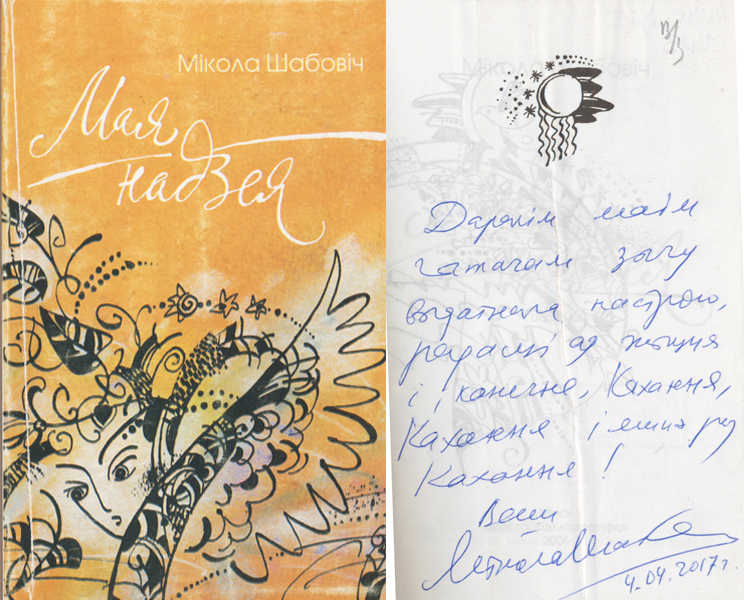 Мікола Шабовіч
Мая
надзея
Дарагім маім
чытачам зычу
выдатнага настрою,
радасці ад жыцця
і, канечне, Кахання,
Кахання і яшчэ раз
Кахання!
Ваш
4.04.2017г.